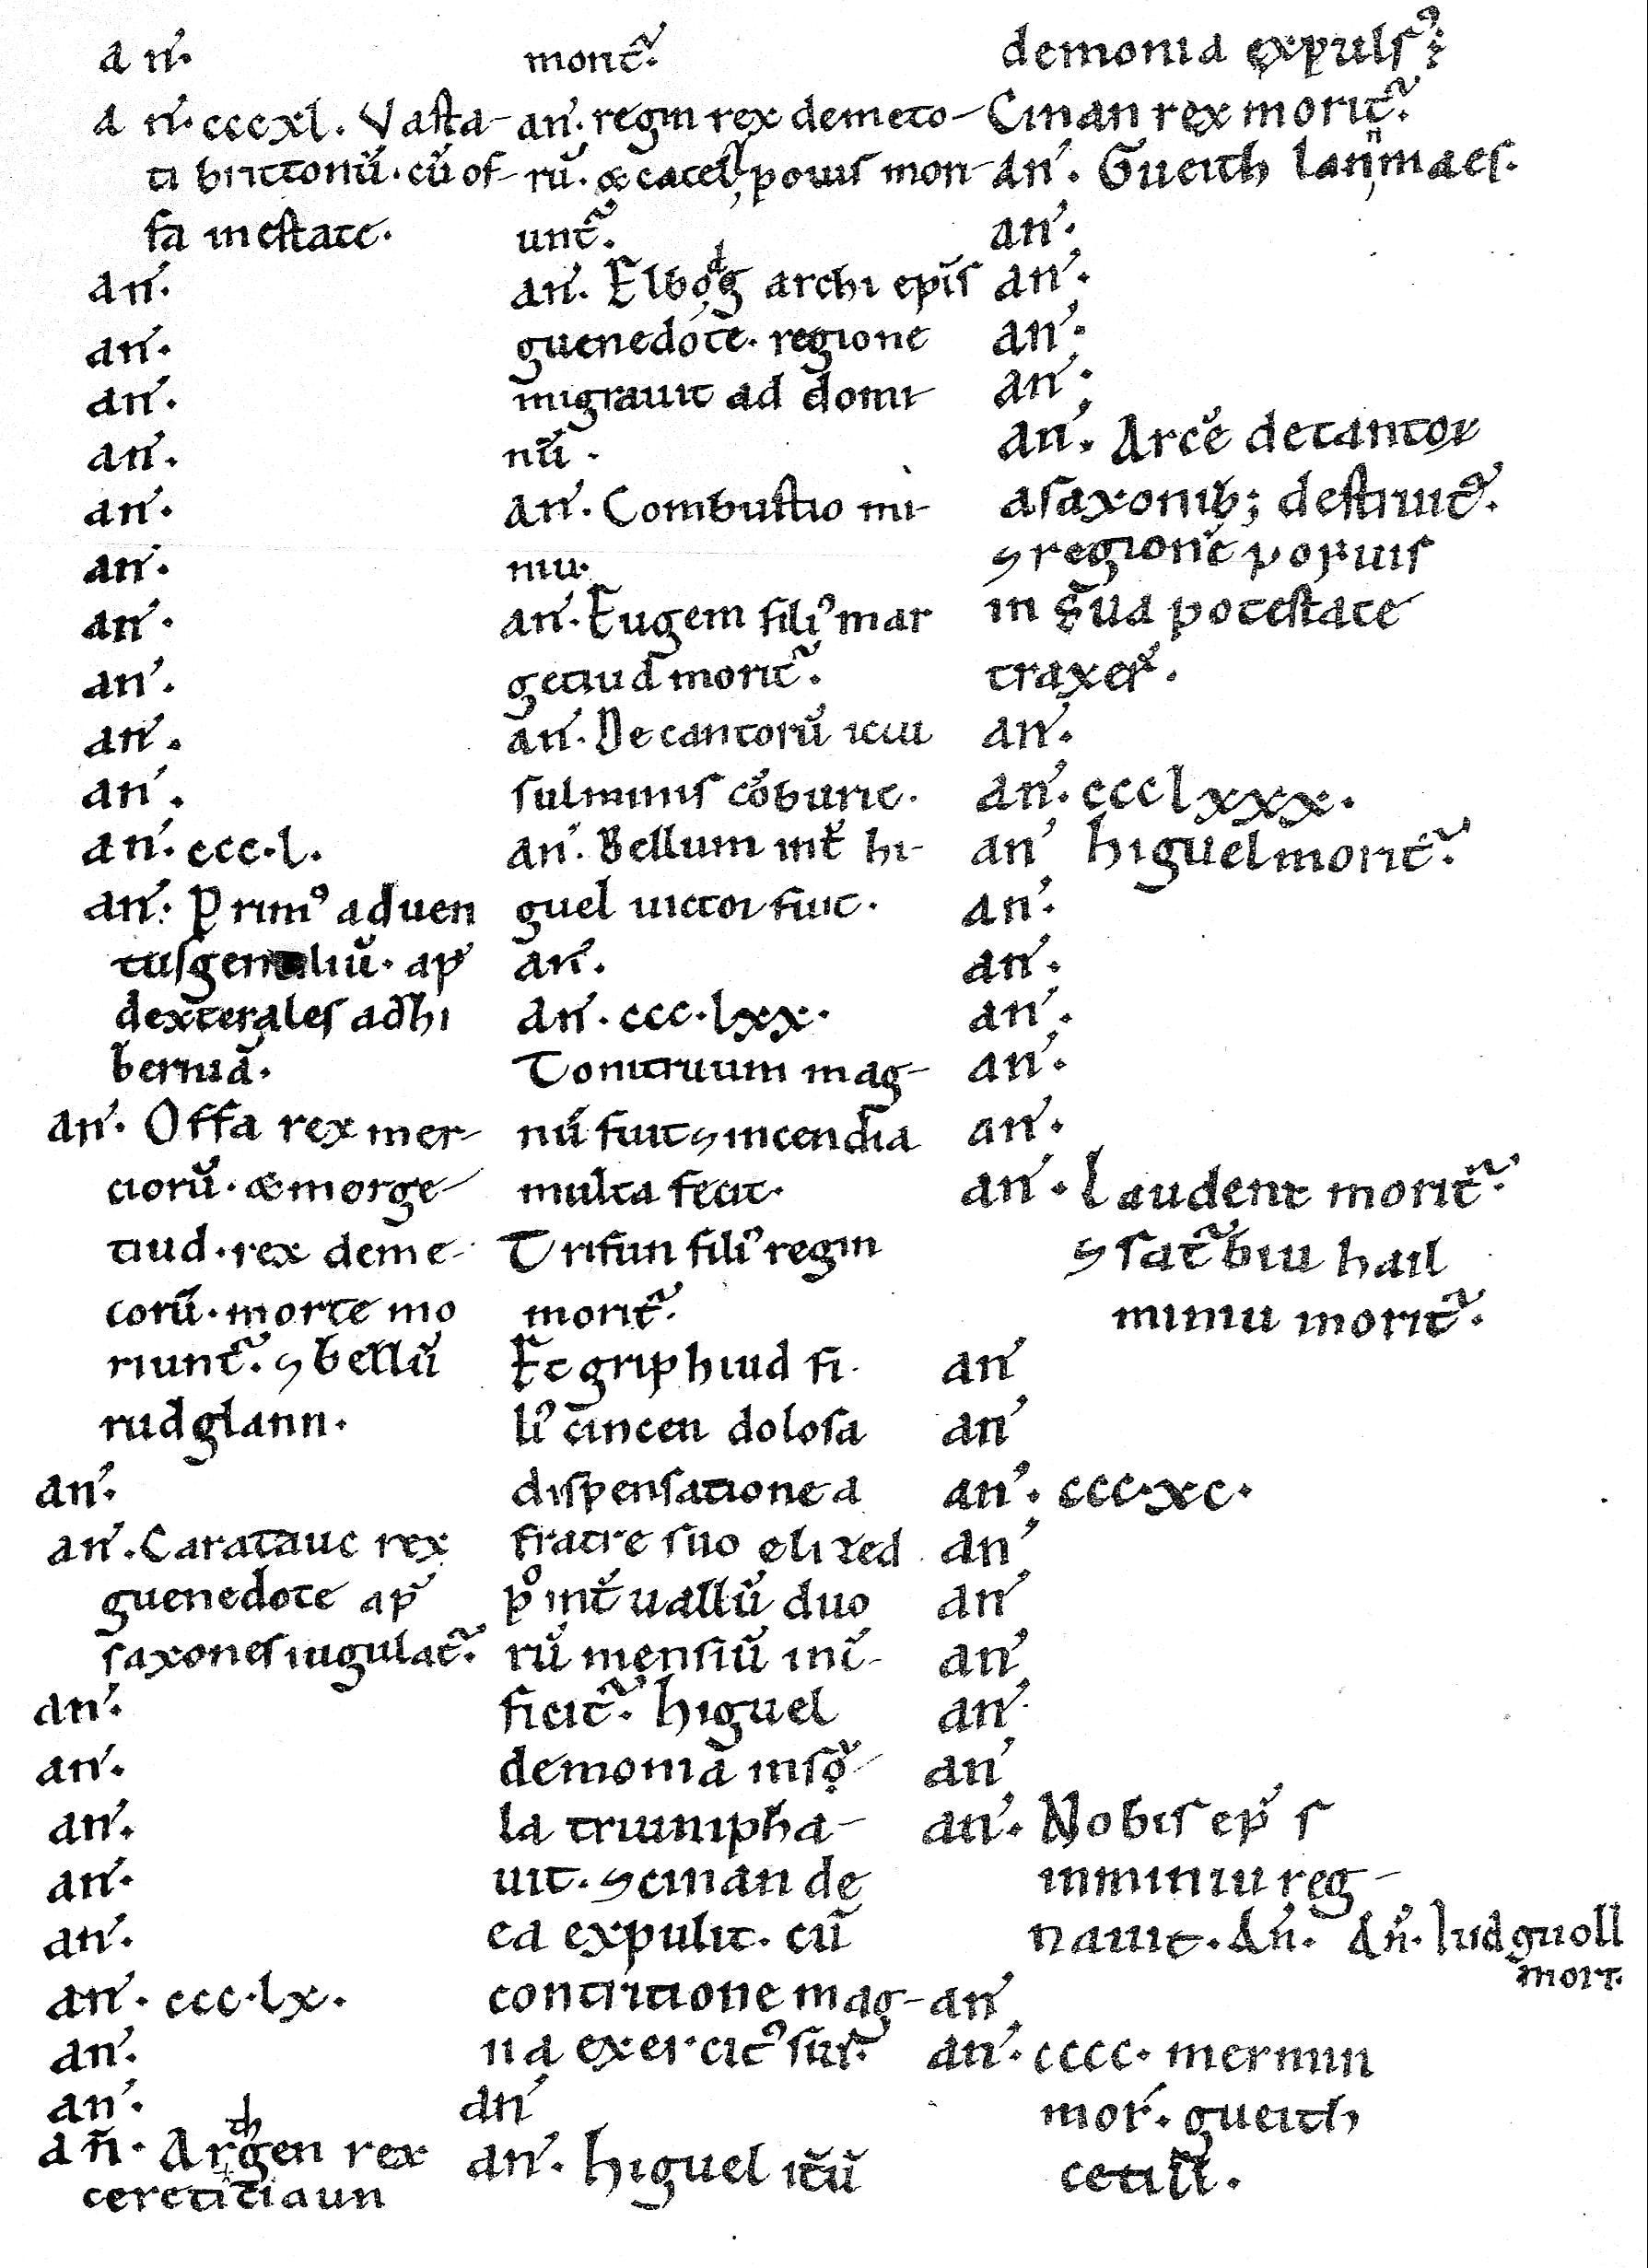 an̄.
an̄. cccxl. Vasta-
ti brittonū. cū of-
fa in estate.
an̄.
an̄.
an̄.
an̄.
an̄.
an̄.
an̄.
an̄.
an̄.
an̄.
an̄. ccc.l.
an̄. Primꝰ aduen
tus gentiliū. ap̄
dexterales ad hi
berniā.
an̄. Offa rex mer-
ciorū. & morge-
tiud. rex deme-
torū. morte mo
riunt᷑. ⁊ bellū
rudglann.
an̄.
an̄. Caratauc rex
guenedote ap̄
saxones iugulat᷑.
an̄.
an̄.
an̄.
an̄.
an̄.
an̄. ccc.lx.
an̄.
an̄.
an̄. Arthgen rex
cereticiaun
morit᷑.
an̄. regin rex demeto-
rū. & catell, pouis mori-
unt᷑.
an̄. Elbodg archi epīs
guenedote. regione
migrauit ad domi-
nū.
an̄. Combustio mi-
niu.
an̄. Eugem filiꝰ mar
getiud morit᷑.
an̄. Decantorū ictu
fulminis cōburit.
an̄. Bellum int̄ hi-
guel uictor fuit.
an̄.
an̄. ccc.lxx.
Tonitruum mag-
nū fuit ⁊ incendia
multa fecit.
Trifun filiꝰ regin
morit᷑.
Et griphiud fi-
liꝰ cincen dolosa
dispensatione a
fratre suo elized
p̊ int̄ uallū duo
rū mensiū int̄-
ficit᷑. higuel
de moniā insọ̄-
la triumpha-
uit. ⁊ cinan de
ea expulit. cū
contritione mag-
na exercitꝰ sui᷑.
an̄
an̄. higuel itū
de monia expulsꝰ;
Cinan rex morit᷑.
an̄. Gueith lannmaes.
an̄.
an̄.
an̄.
an̄.
an̄. Arcē decantor̄
a saxonib; destruit᷑.
⁊ regionē poyuis
in sua potestate
traxer̄.
an̄.
an̄. ccclxxx.
an̄ higuel morit᷑.
an̄.
an̄.
an̄.
an̄.
an̄.
an̄. laudent morit᷑.
⁊ sat᷑biu hail
miniu morit᷑.
an̄
an̄
an̄. ccc.xc.
an̄
an̄
an̄
an̄
an̄
an̄. Nobis ep̄ s
in miniu reg-
nauit. An̄. An̄. Iudguoll
mori.
an̄
an̄. cccc. mermin
mor̄. gueith
cetill.